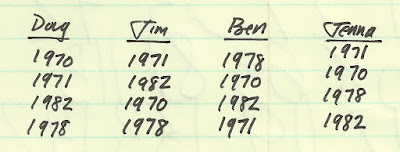 Doug Tim Ben Jenna
1970 1971 1978 1971
1971 1982 1970 1970
1982 1970 1982 1978
1978 1978 1971 1982